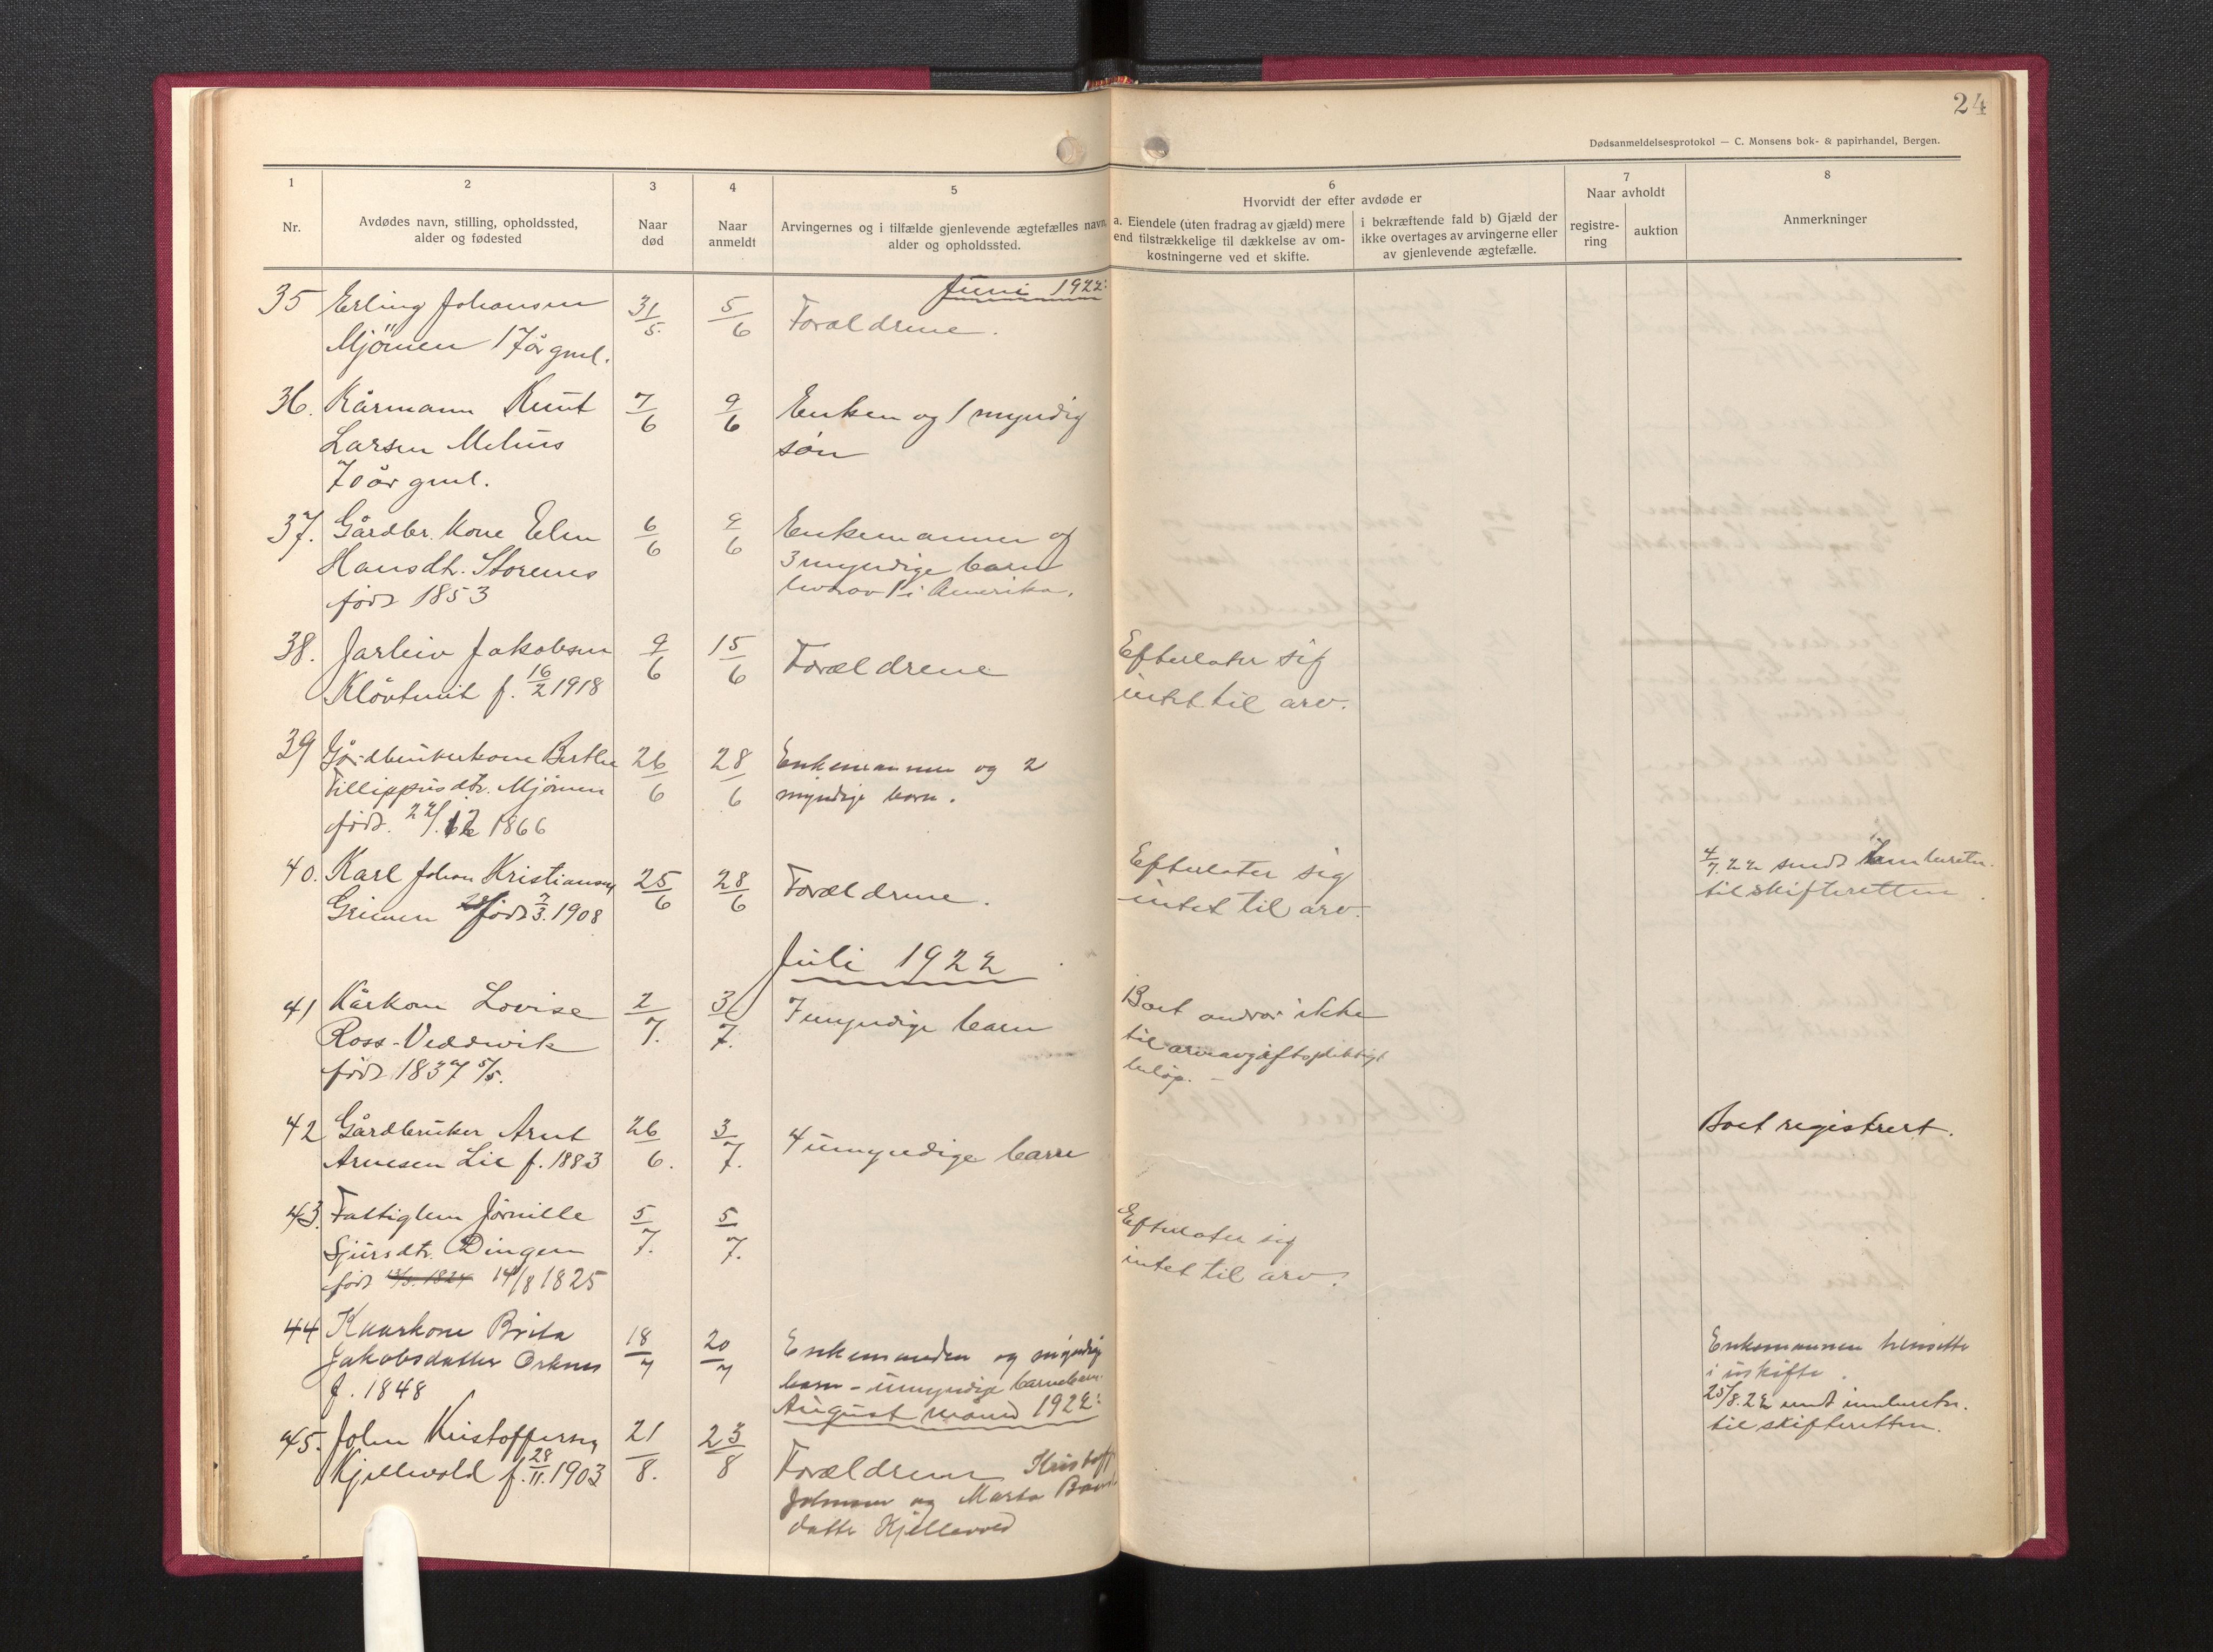 24
Dødsanmeldelsesprotokol — C. Monsens bok- & papirhandel, Bergen.
1
Nr.
2
Avdødes navn, stilling, opholdssted,
alder og fødested
3
Naar
død
4
Naar
anmeldt
5
Arvingernes og i tilfælde gjenlevende ægtefælles navn,
alder og opholdssted.
6
Hvorvidt der efter avdøde er
a. Eiendele (uten fradrag av gjæld) mere
end tilstrækkelige til dækkelse av om-
kostningerne ved et skifte.
i bekræftende fald b) Gjæld der
ikke overtages av arvingerne eller
av gjenlevende ægtefælle.
7
Naar avholdt
registre-
ring
auktion
8
Anmerkninger
Juni 1922:
35 Erling Johansen 31/5. 5/6 Forældrene.
Mjömen 17 år gml.
36. Kårmann Knut 7/6 9/6 Enken og 1 myndig
Larsen Mehus søn
70 år gml.
37. Gårdbr. kone Elen 6/6 9/6 Enkemannen og
Hansdt. Storenes 3 myndige barn
född 1853 hvorav 1 i Amerika.
38. Jarleiv Jakobsen 9/6 15/6 Forældrene Efterlater sig
Klövtveit f. 16/2 1918 intet til arv.
39 Gårdbrukerkone Berthe 26/6 28/6 Enkemannen og 2
Fillippusdtr. Mjömen myndige barn.
född. 12 1866
40. Karl Johan Kristiansen 25/6 28/6 Forældrene. Efterlater sig 4/7.22 sendt innberetn.
Grimen född 7/3. 1908 intet til arv. til skifteretten.
Juli 1922
41 Kårkone Lovise 2/7. 3/7. 7 myndige barn Boet andrar ikke
Ross-Veddvik til arveavgiftspliktigt
född 1837 5/5. beløp. –
42 Gårdbruker Arnt 26/6. 3/7. 4 umyndige barn Boet registrert.
Arnesen Lie f. 1883
43. Fattiglem Jörnille 5/7. 5/7. Efterlater sig
Sjursdtr. Dingen intet til arv.
född 14/8 1825
44 Kaarkone Brita 18/7 20/7 Enkemanden og myndige Enkemannen hensitter
Jakobsdatter Orknes barn – umyndige barnebarn. i uskifte.
f. 1848
August måned 1922: 25/8.22 sendt innberetn.
til skifteretten.
45. John Kristoffersen 21/8. 23/8 Forældrene Kristoff
Kjellevold f. 28/11. 1903 Johnsen og Marta
datter Kjellevold